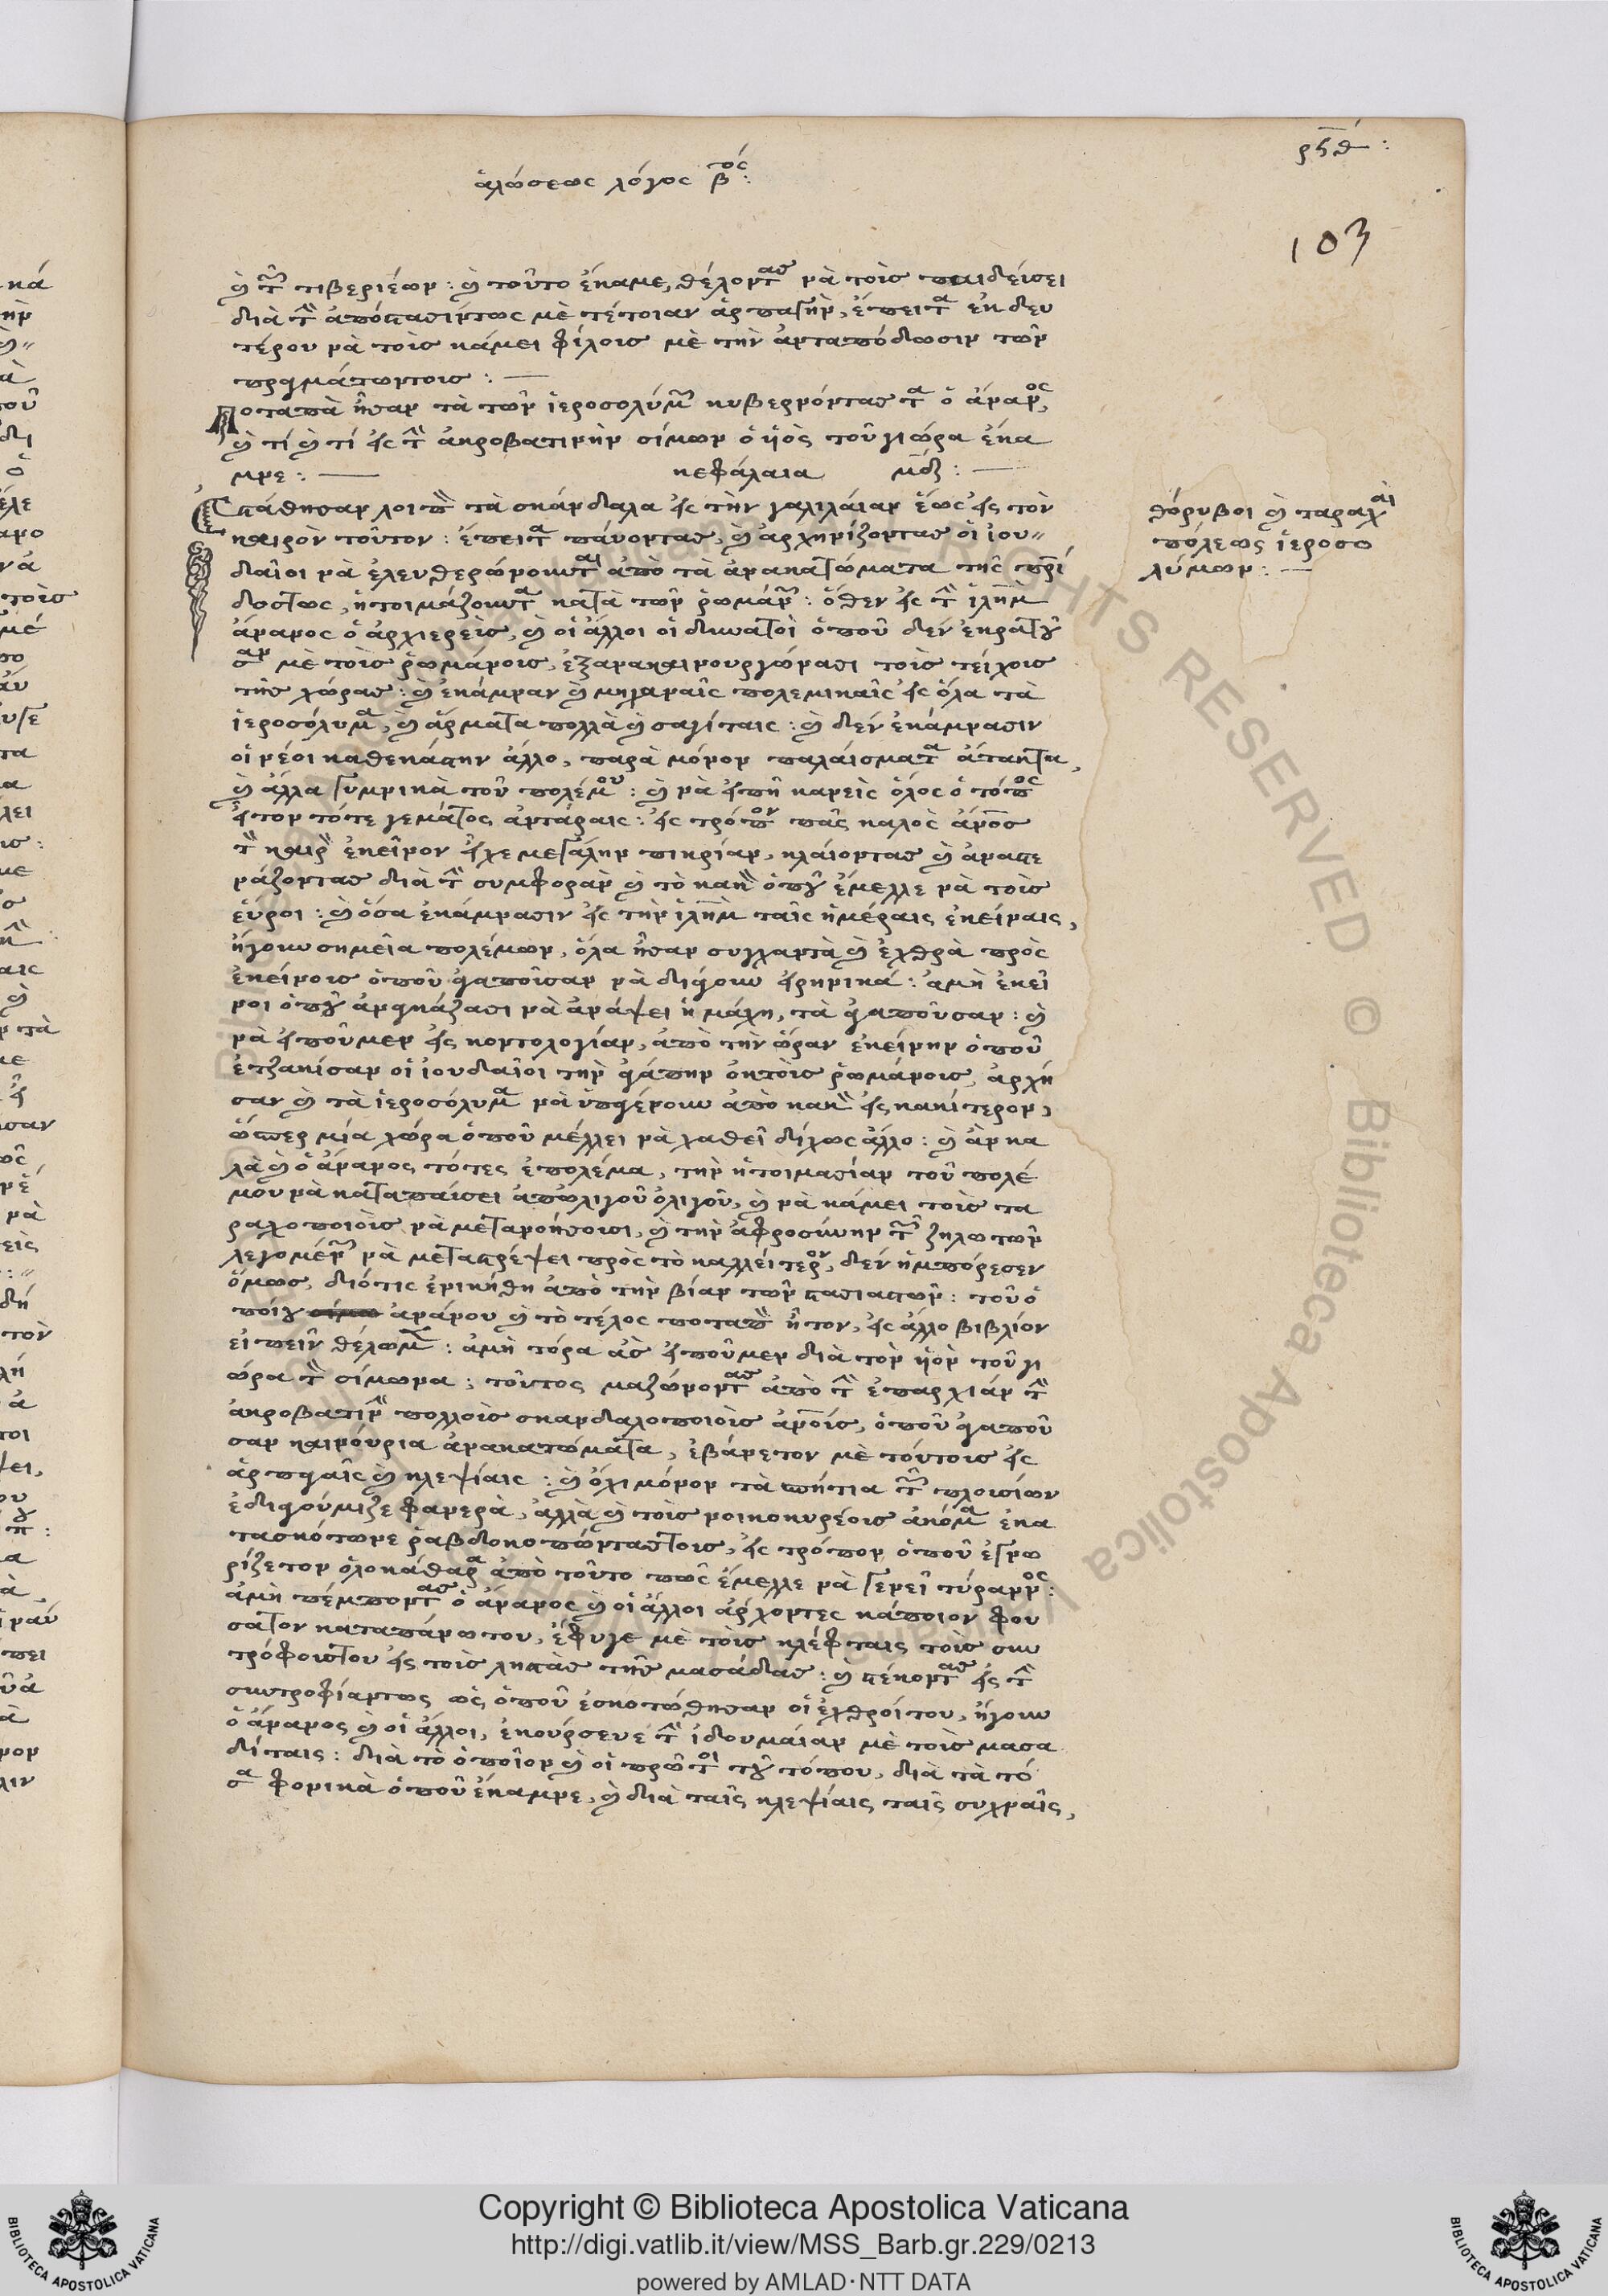 ρϟθ :
ἁλώσεως λόγος βτος:
103
καὶ τῶν τιβεριέων : καὶ τοῦτο ἔκαμε, θέλοντας νὰ τοὺς παιδεύσει
διὰ τὴν ἀπόστασίντως μὲ τέτοιαν ἁρπαγὴν, ἔπειτα ἐκ δευ
τέρου νὰ τοὺς κάμει φίλους μὲ τὴν ἀνταπόδωσιν τῶν
πραγμάτωντους : —
Ποταπὰ ἦσαν τὰ τῶν ἱεροσολύμων κυβερνόντας τα ὁ ἄνανος,
καὶ τί καὶ τί εἰς τὴν ἀκροβατινὴν σίμων ὁ ὑὸς τοῦ γιώρα ἔκα
μνε : — κεφάλαια μδ : —
Ἐστάθησαν λοιπὸν τὰ σκάνδαλα εἰς τὴν γαλιλαίαν ἕως εἰς τὸν
καιρὸν τοῦτον : ἔπειτα παύοντας, καὶ ἀρχηνίζοντας οἱ ἰου"
δαῖοι νὰ ἐλευθερώνουνται ἀπὸ τὰ ἀνακατώματα τῆς πατρί
δοςτως, ἡτοιμάζουντα κατὰ τῶν ῥωμάνων : ὅθεν εἰς τὴν ἱλὴμ
ἄνανος ὁ ἀρχιερεὺς, καὶ οἱ ἄλλοι οἱ δυνατοὶ ὁποῦ δὲν ἐκρατοῦ
σαν μὲ τοὺς ῥωμάνους, ἐξανακαινουργώνασι τοὺς τείχους
τῆς χώρας : καὶ ἐκάμναν καὶ μηχαναῖς πολεμικαῖς εἰς ὅλα τὰ
ἱεροσόλυμα, καὶ ἅρματα πολλὰ καὶ σαγίταις : καὶ δὲν ἐκάμνασιν
οἱ νέοι καθεκάστην ἄλλο, παρὰ μόνον παλαίσματα ἄτακτα,
καὶ ἄλλα γυμνικὰ τοῦ πολέμου : καὶ νὰ εἰπῆ κανεὶς ὅλος ὁ τόπος
ἦτον τότε γεμάτος ἀντάραις : εἰς τρόπον πᾶς καλὸς ἄνος
τὸν καιρὸν ἐκεῖνον εἶχε μεγάλην πικρίαν, κλαίοντας καὶ ἀναστε
νάζοντας διὰ τὴν συμφορὰν καὶ τὸ κακὸν ὁποῦ ἔμελλε νὰ τοὺς
εὕροι : καὶ ὅσα ἐκάμνασιν εἰς τὴν ἱλὴμ ταῖς ἡμέραις ἐκείναις,
ἤγουν σημεῖα πολέμων, ὅλα ἦσαν συγχαντὰ καὶ ἐχθρὰ πρὸς
ἐκείνους ὁποῦ ἀγαποῦσαν νὰ διάγουν εἰρηνικά : ἀμὴ ἐκεῖ
νοι ὁποῦ ἀναγκάζασι νὰ ἀνάψει ἡ μάχη, τὰ ἀγαποῦσαν : καὶ
νὰ εἰποῦμεν εἰς κοντολογίαν, ἀπὸ τὴν ὥραν ἐκείνην ὁποῦ
ἐτζακίσαν οἱ ἰουδαῖοι τὴν ἀγάπην ἐκτοὺς ῥωμάνους, ἀρχή
σαν καὶ τὰ ἱεροσόλυμα νὰ ὑπαγένουν ἀπὸ κακὸν εἰς κακίτερον,
ὥσπερ μία χώρα ὁποῦ μέλλει νὰ χαθεῖ δίχως ἄλλο : καὶ ἂν κα
λὰ καὶ ὁ ἄνανος τότες ἐπολέμα, τὴν ἡτοιμασίαν τοῦ πολέ
μου νὰ καταπαύσει ἀπὸλιγοῦ ὀλιγοῦ, καὶ νὰ κάμει τοὺς τα
ραχοποιοὺς νὰ μετανοήσουσι, καὶ τὴν ἀφροσύνην τῶν ζηλωτῶν
λεγομένων νὰ μεταστρέψει πρὸς τὸ καλλείτερον, δὲν ἠμπόρεσεν
ὅμως, διότις ἐνικήθη ἀπὸ τὴν βίαν τῶν στασιαστῶν : τοῦ ὁ
ποίου ἀνάνου καὶ τὸ τέλος ποταπὸν ἦτον, εἰς ἄλλο βιβλίον
εἰπεῖν θέλωμεν : ἀμὴ τόρα ἂς εἰποῦμεν διὰ τὸν ὑὸν τοῦ γι
ώρα τὸν σίμωνα : τοῦτος μαζώνοντας ἀπὸ τὴν ἐπαρχίαν τὴν
ἀκροβατινὴν πολλοὺς σκανδαλοποιοὺς ἀνους, ὁποῦ ἀγαποῦ
σαν καινούρια ἀνακατώματα, ἐβάνετον μὲ τούτους εἰς
ἁρπαγαῖς καὶ κλεψίαις : καὶ ὄχι μόνον τὰ σπήτια τῶν πλουσίων
ἐδιαγούμιζε φανερὰ, ἀλλὰ καὶ τοὺς νοικοκυρέους ἀκόμα ἐκα
τασκότωνε ῥαβδοκοπώνταςτους, εἰς τρόπον ὁποῦ ἐγνω
ρίζετον ὁλοκάθαρα ἀπὸ τοῦτο πῶς ἔμελλε νὰ γενεῖ τύραννος :
ἀμὴ πέμποντας ὁ ἄνανος καὶ οἱ ἄλλοι ἄρχοντες κάποιον φου
σάτον καταπάνωτου, ἔφυγε μὲ τοὺς κλέφταις τοὺς συν
τρόφουςτου εἰς τοὺς ληστὰς τῆς μασάδας : καὶ στέκοντας εἰς τὴν
συντροφίαντως ὡς, ὁποῦ ἐσκοτώθησαν οἱ ἐχθροίτου, ἤγουν
ὁ ἄνανος καὶ οἱ ἄλλοι, ἐκούρσευε τὴν ἰδουμαίαν μὲ τοὺς μασα
δίταις : διὰ τὸ ὁποῖον καὶ οἱ πρῶτοι τοῦ τόπου, διὰ τὰ τό
σα φονικὰ ὁποῦ ἔκαμνε, καὶ διὰ ταῖς κλεψίαις ταῖς συχναῖς,
θόρυβοι καὶ ταραχαὶ
πόλεως ἱεροσο
λύμων : —
Copyright © Biblioteca Apostolica Vaticana
http://digi.vatlib.it/view/MSS_Barb.gr.229/0213
powered by AMLAD·NTT DATA